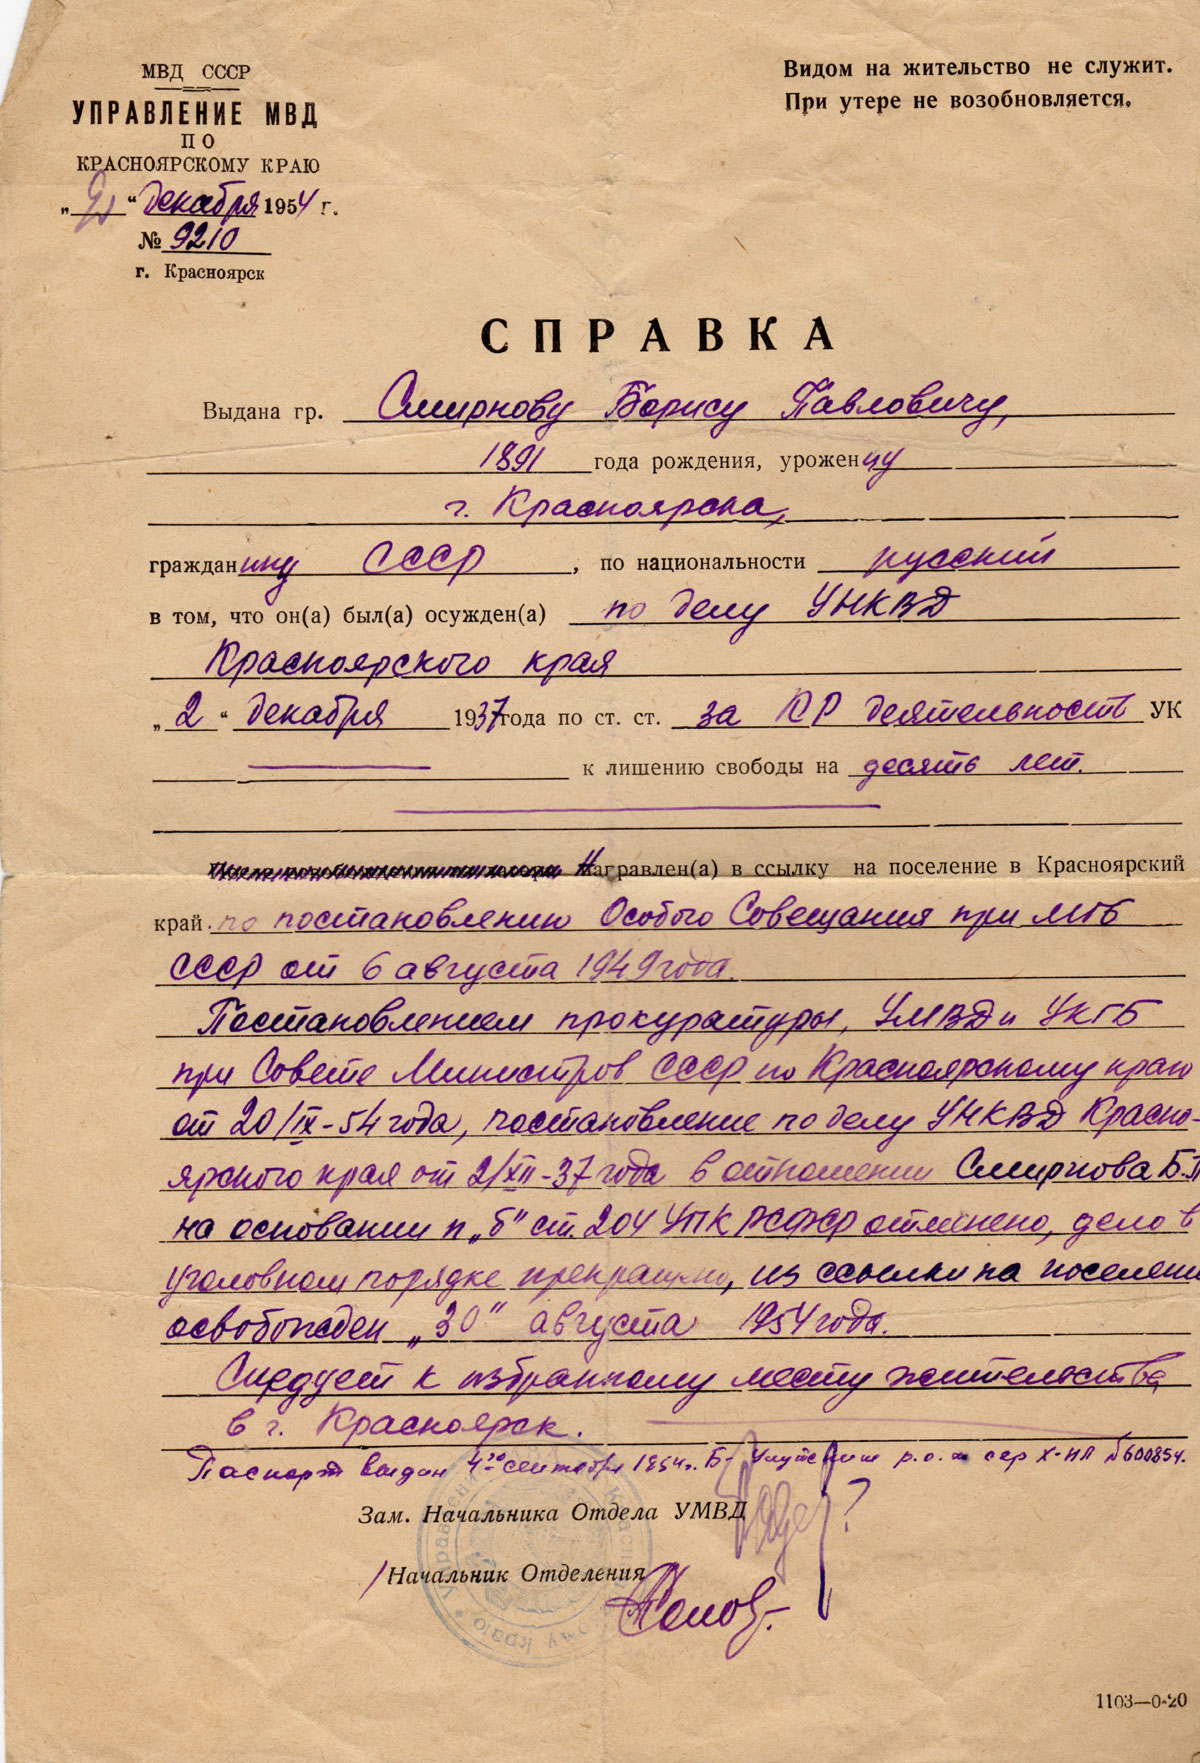 МВД СССР
УПРАВЛЕНИЕ МВД
ПО
КРАСНОЯРСКОМУ КРАЮ
„ “ декабря 1954 г.
№ 9210
г. Красноярск
Видом на жительство не служит.
При утере не возобновляется.
СПРАВКА
Выдана гр. Смирнову Борису Павловичу,
1891 года рождения, уроженцу
г. Красноярска,
гражданину СССР, по национальности русский
в том, что он(а) был(а) осужден(а) по делу УНКВД
Красноярского края
„2“ декабря 1937 года по ст. ст. за КР деятельность УК
к лишению свободы на десять лет.
Направлен(а) в ссылку на поселение в Красноярский
край. по постановлению Особого Совещания при МГБ
СССР от 6 августа 1949 года.
Постановлением прокуратуры, УМВД и УКГБ
при Совете Министров СССР по Красноярскому краю
от 20/IX-54 года, постановление по делу УНКВД Красно-
ярского края от 2/XII-37 года в отношении Смирнова Б.П
на основании п „б“ ст. 204 УПК РСФСР отменено, дело в
уголовном порядке прекращено, из ссылки на поселени
освобожден „30“ августа 1954 года.
Следует к избранному месту жительства
в г. Красноярск.
Паспорт выдан 4го сентября 1954г. Б- Улуйским р.о.м сер X-НЛ №600854.
Зам. Начальника Отдела УМВД
Начальник Отделения
Управление Красноярскому краю
1103—0-20